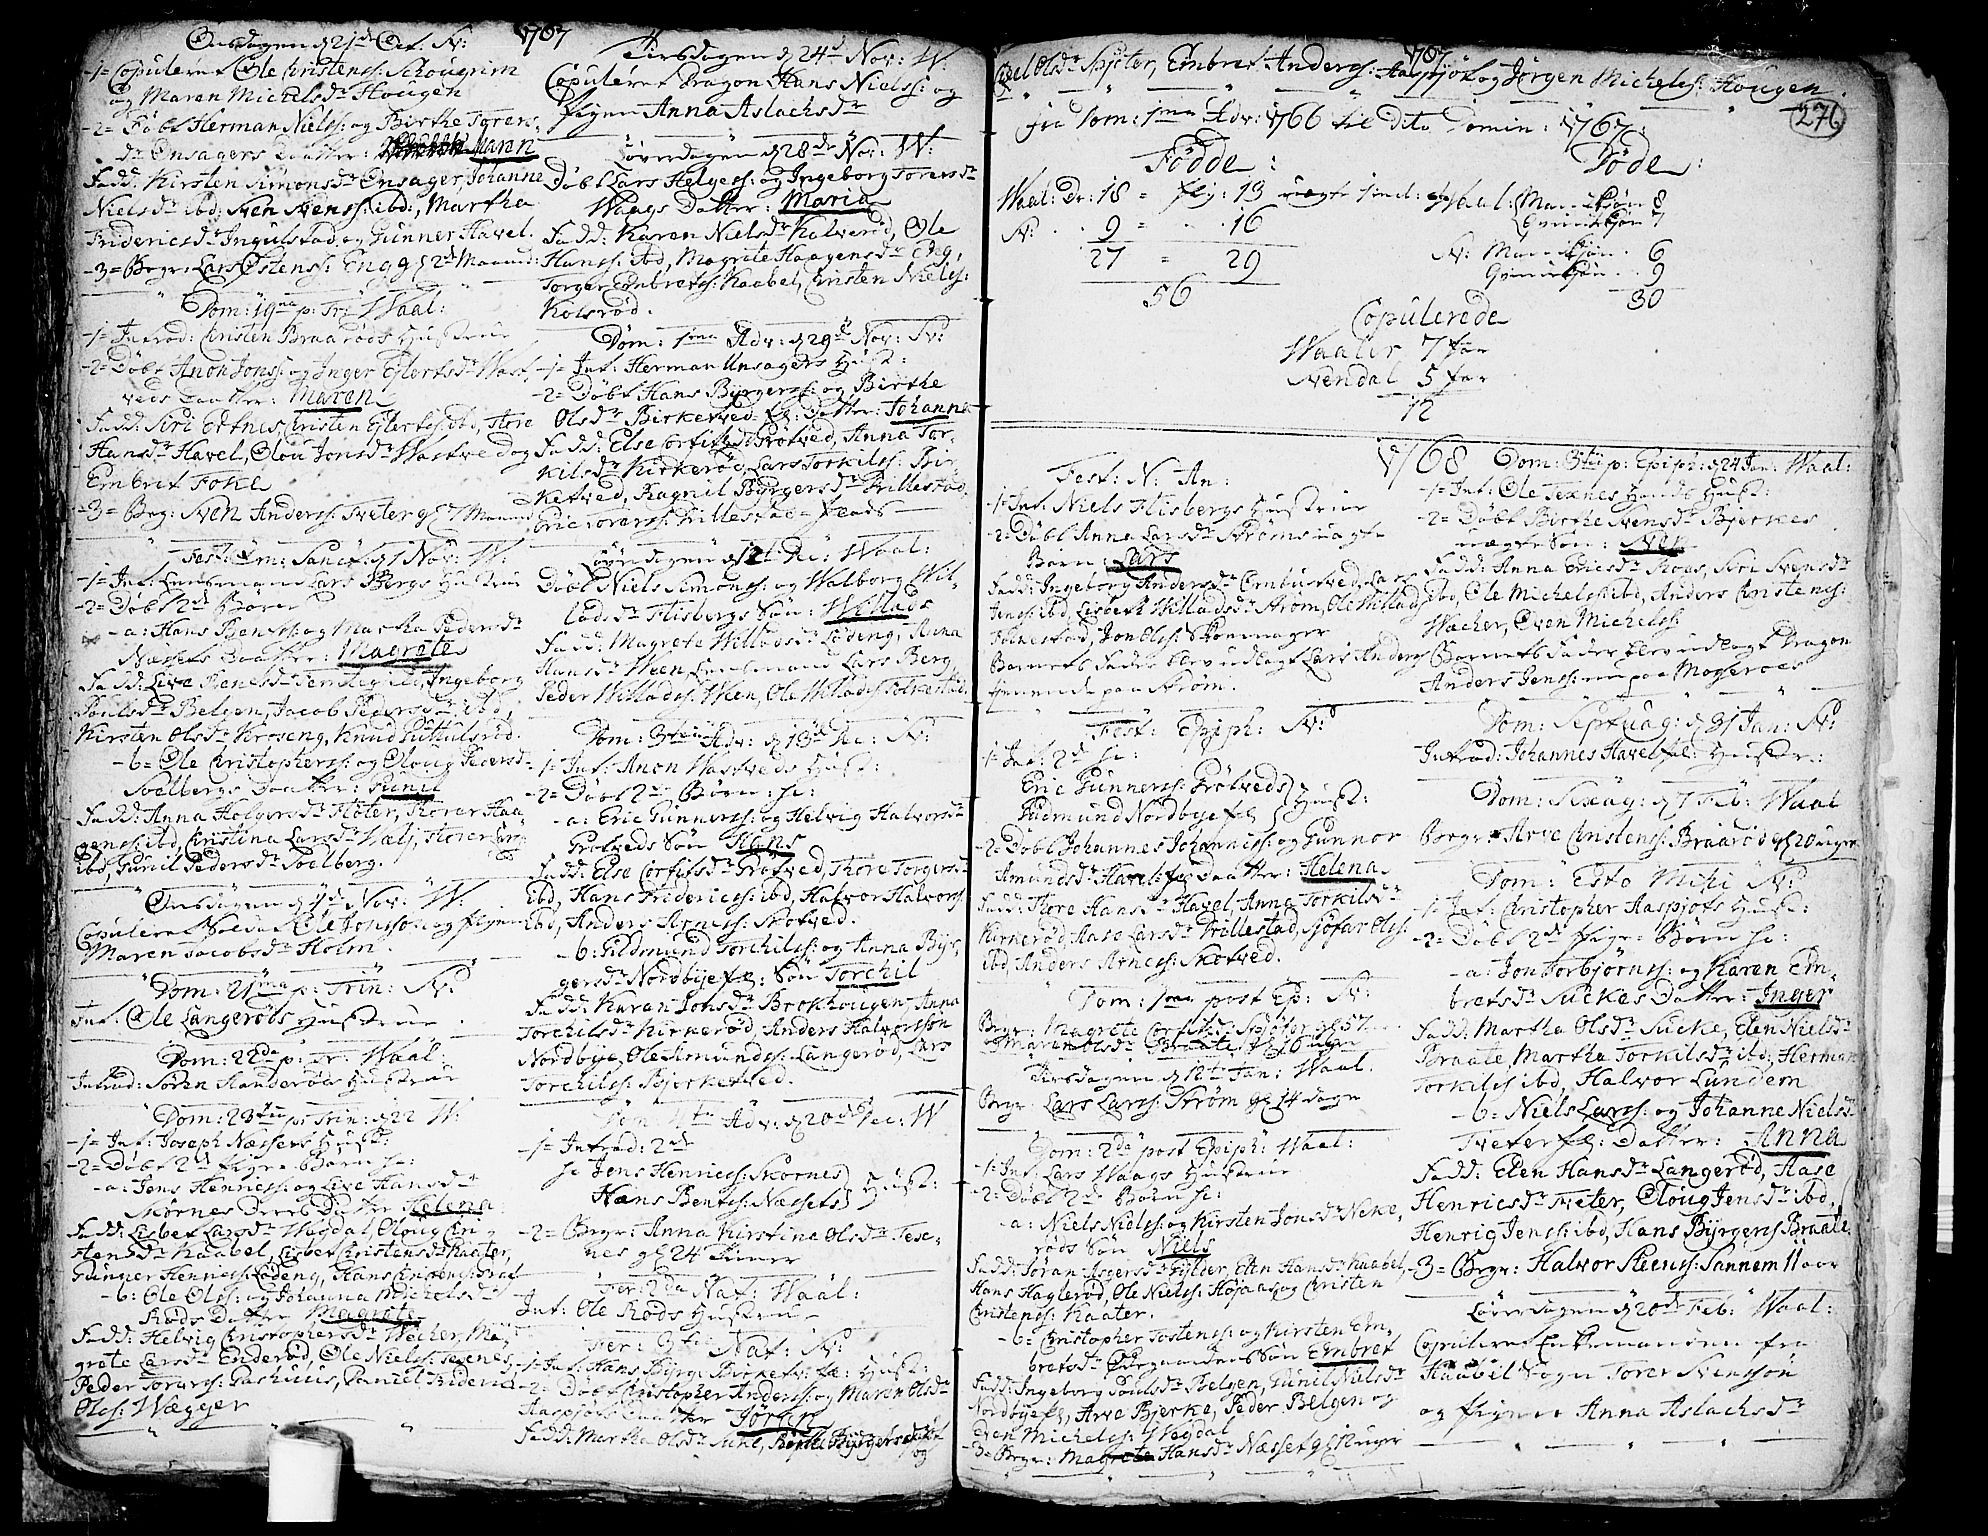 1767
Onsdagen d 21de Oct. N:
-1= Copuleret Ole Christens: Schougrim
og Maren Michelsdr Hougen
-2= Døbt Herman Niels: og Birthe Torers
dr Onsagers Daatter: Marin
Fadd: Kirsten Simonsdr Onsager, Johanne
Nielsdr ibd: Sven Svens: ibd:, Martha
Fridericsdr Ingulstad og Gunner Havel.
-3= Begr: Lars Østens: Engg
Dom: 19na p: Tr: Waal:
-1= Introd: Christen Braarøds Hustrue
-2= Døbt Anon Jons: og Inger Eflertsdr Wast
veds Daatter: Maren
Fadd: Siri Christen ibd, Thore
Hansdr Havel, Olou Jonsdr Wastved og
Embret Foke
-3= Begr: Sven Anders: Tveter
Fest: Om: Sanct: d 1 Nov: W:
-1= Int: Lensmand Lars Bergs Hustrue
-2= Døbt 2de Børn
a: Hans Bents: og Martha Pedersdr
Næssets Daatter: Magrete
Fadd: Live Ingeborg
Poulsdr Belgen, Jacob Peders: ibd,
Kirsten Olsdr Kroseng, Knud
-b= Ole Christophers: og Oloug
Soelbergs Daatter: Gunil
Fadd: Anna Holgersdr Fløter, Thorer Haa
gens: ibd, Christina Larsdr
ibd, Gunil Pedersdr Soelberg.
Onsdagen d Nov: W:
Copuleret Soldat Ole Jonsson og Pigen
Maren Jacobsdr Holm
Dom: 21ma p: Trin: N:
Int: Ole Langerøds Hustrue
Dom: 22da p: Tr: Waal:
Introd: Søren Handerøds Hustrue
Dom: 23tia p: Trin: d 22 W:
-1= Int: Joseph Næssets Hust:
-2= Døbt 2de Børn
-a: Jens Henrics: og Live Hansdr
Skornes Daatter Helena
Fadd: Lisbet Larsdr Wegdal, Oloug Chri
stensdr Kaabel, Lisbet Christensdr Kaater,
Gunner Henrics: Lødeng, Hans Christens:
-b: Ole Ols: og Johanna Michelsdr
Røds Datter Magrete
Fadd: Helvig Christophersdr Wecher, Ma
grete Larsdr Enderød, Ole Niels: Tesenes,
Peder Torers:
Ols: Wægger
Tirsdagen d 24d Nov: W.
Copuleret Dragon Hans Niels: og
Pigen Anna Aslachsdr
Løverdagen d 28de Nov: W:
Døbt Lars Helges: og Ingeborg Torersdr
Waags Datter: Maria
Fadd: Karen Nielsdr Kolverød, Ole
Hans: ibd, Magrite Haagensdr Eng,
Torger Embrets: Kaabel, Christen Niels:
Kolsrød.
Dom: 1ma Adv: d 29de Nov: N:
-1= Int: Herman Unsagers Hust:
-2= Døbt Hans Byrgers: og Birthe
Olsdr Birketved Datter: Johanna
Fadd: Else Corfitsdr Protved, Anna Tor-
kilsdr Kirkerøe, Lars Torkils: Bir-
ketved, Ragnil Byrgersdr Trillestad
Eric Torers: Trillestad
Løverdagen d 12t Dec: Waal:
Døbt Niels Simons: og Walborg Wil-
ladsdr Flisbergs Søn: Willads
Fadd: Magrete Willadsdr Lødeng, Anna
Hansdr Ween, Lensmand Lars Berg,
Peder Willads: Ween, Ole Willads: Folkestad.
Dom: 3tia Adv: d 13de Dec: N:
-1= Int: Anon Wastveds Hust:
-2= Døbt 2de Børn: sc:
a: Eric Gunners: og Helvig Halvorsdr
Protveds Søn Hans
Fadd: Else Corfitsdr Protved, Thore Torgersdr
ibd, Hans Friderics: ibd, Halvor Halvors:
ibd, Anders Arnes: Skotved.
-b: Gudmund Torchils: og Anna Byr-
gersdr Nordbye Søn Torchil
Fadd: Karen Jonsdr Brokhougen, Anna
Torchilsdr Kirkerød, Anders Halvorsson
Nordbye, Ole Amunds: Langerød, Lars
Torchils: Bjerketved.
Dom: 4ta Adv: d 20de Dec: W
-1= Introd: 2de
sc Jens Henrics: Skornes
Hans Bents: Næssets Hust:
-2= Begr: Anna Kirstina Olsdr Tese-
nes 24 Timer
Fer: 2da Nat: Waal:
Int: Ole Røds Hustrue
Fer: 3tia Nat: N:
-1= Int: Hans Byrg: Birketv: Hust:
-2= Døbt Christopher Anders: og Maren Olsdr
Aaspjøts Daatter Jøran
Fadd: Martha Olsdr Sune, Birthe Byrgersdr
og
1767
276
Olsdr Spjøter, Embret Anders: Aaspjøt og Jørgen Michels: Hougen
Fra Dom: 1ma Adv: 1766 til dito Domin: 1767:
Fødde:
Waal: Dr: 18 = Pig: 13
N: . . 9 = . . 16
27 = 29
56
Døde:
Waal: Mandkjøn 8
Qvindekjøn 7
N: Mandkjøn . 6
Qvindekjøn . . 9
30
Copulerede
Waaler 7 par
Nendal 5 par
12
1768
Fest: N: An:
-1= Int: Niels Flisbergs Hustrue
-2= Døbt Anne Larsdr Strøms uægte
Barn: Lars
Fadd: Ingeborg Andersdr Lars
Jens: ibd, Lisbeth Willadsdr Strøm, Ole Willads:
Folkestad, Jon Ols: Skoemager
Barnets Fader blev udlagt Lars Anders:
tienende paa Strøm.
Fest: Epiph: N:
-1= Int: 2de sc:
Eric Gunners: Protveds
Gudmund Nordbye Hust:
-2= Døbt Johannes Johannes: og Gunnor
Amundsdr Havel: Daatter: Helena
Fadd: Thore Hansdr Havel, Anna Torkilsdr
Kirkerød, Aase Larsdr Trillestad, Sjøfar Ols:
ibd, Anders Arnes: Skotved.
Dom: 1ma post Ep: N:
Begr: Magrete Corfitsdr Spjøter 57
og Maren Olsdr Braate 16 uger
Tirsdagen d 12te Jan: Waal.
Begr: Lars Lars: Strøm 14 dage
Dom: 2da post Epiph: Waal:
-1= Int: Lars Waags Hustrue
-2= Døbt 2de Børn sc:
a: Niels Niels: og Kirsten Jonsdr Neke-
røds Søn Niels
Fadd: Jøran Asgersdr Gylder, Elen Hansdr Kaabel,
Hans Haglerød, Ole Niels: Højaas og Christen
Christens: Kaater.
-b= Christopher Tostens: og Kirsten Em-
bretsdr Søn Embret
Fadd: Ingeborg Poulsdr Belgen, Gunil Nielsdr
Nordbye, Arve Bjerke, Peder Belgen og
Even Michels: Wegdal
-3= Begr: Magrete Hansdr Næsset uger
Dom: 3tia p: Epiph: d 24 Jan: Waal:
-1= Int: Ole Texnes Hust:
-2= Døbt Birthe Svensdr Bjerkes
uægte Søn:
Fadd: Anna Ericsdr Roas, Siri Svensdr
ibd, Ole Michels: ibd, Anders Christens:
Wecher, Even Michels:
Barnets Fader blev udlagt Dragon
Anders Jens: paa Mogerøe
Dom: Septuag: d 31 Jan: N:
Introd: Johannes Havel Hustrue:
Dom: Sexag: d 7 Feb: Waal
Begr: Arve Christens: Braarød 20 uger
Dom: Esto Mihi N:
-1= Int: Christopher Aaspjøts Hust:
-2= Døbt 2de Børn sc:
-a: Jon Torbjørns: og Karen Em-
bretsdr Suckes Datter: Inger
Fadd: Martha Olsdr Sucke, Elen Nielsdr
Braate, Martha Torkilsdr ibd, Herman
Torkils: ibd, Halvor Lundem
-b= Niels Lars: og Johanne Nielsdr
Tveter Datter: Anna
Fadd: Elen Hansdr Langerød, Aase
Henricsdr Tveter, Oloug Jensdr ibd,
Henrig Jens: ibd, Hans Byrgers: Braate.
-3= Begr: Halvor Steens: Sannem 11 aar
Løverdagen d 20de Feb: Waal:
Copuleret Enkemanden fra
Haabøl Sogn Torer Svensøn
og Pigen Anna Aslachsdr